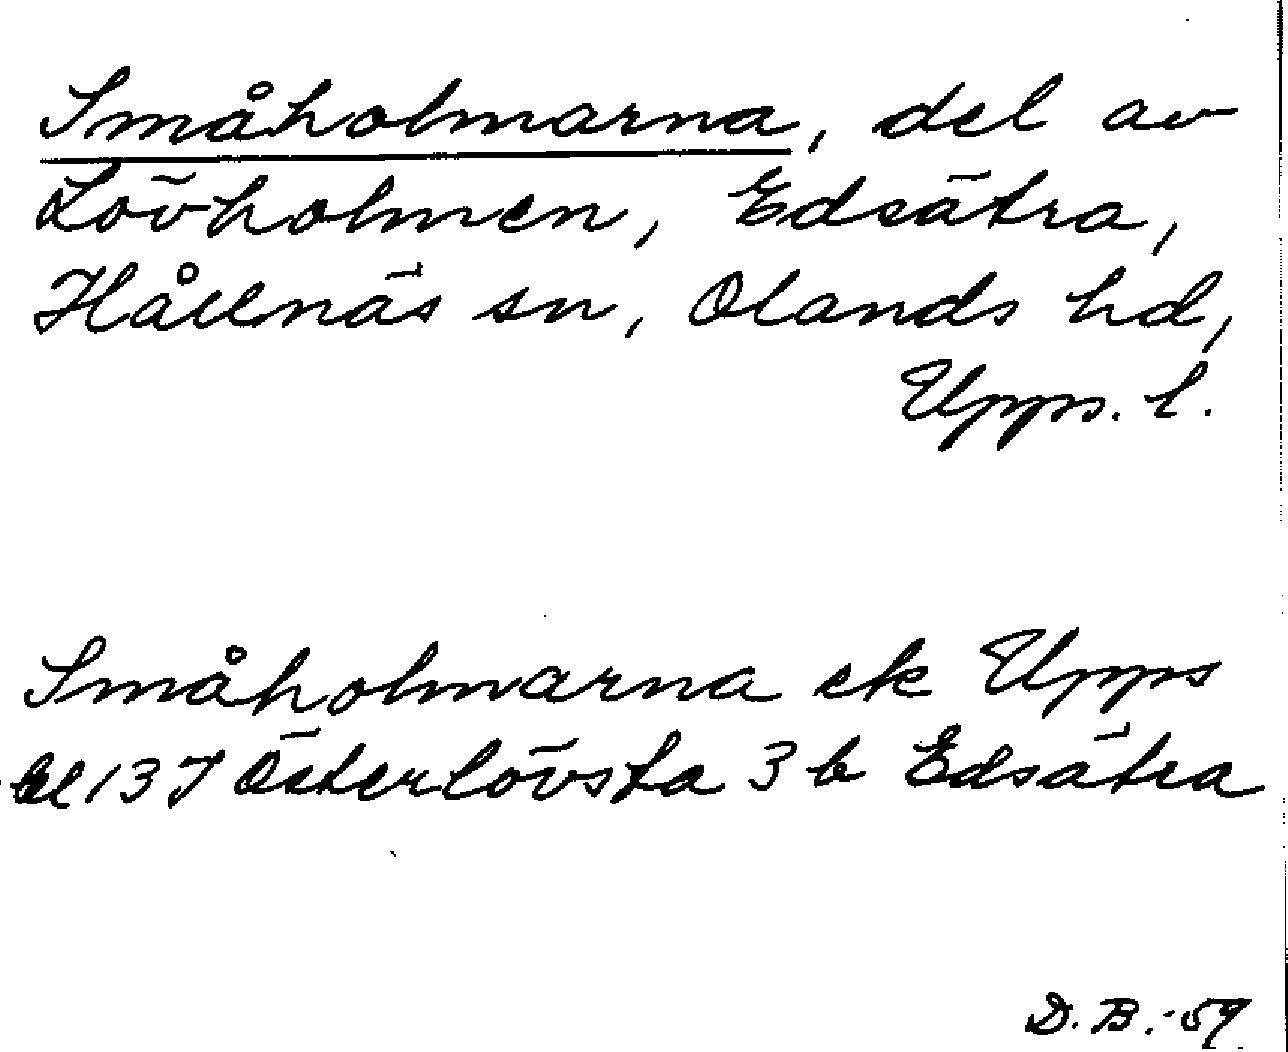 Småholmarna, del av
Lövholmen, Edsätra,
Hållnäs sn, Olands hd,
Upps. l.
Småholmarna ek Upps
bl 13 I Österlövsta 3 b Edsätra
D. B. -59